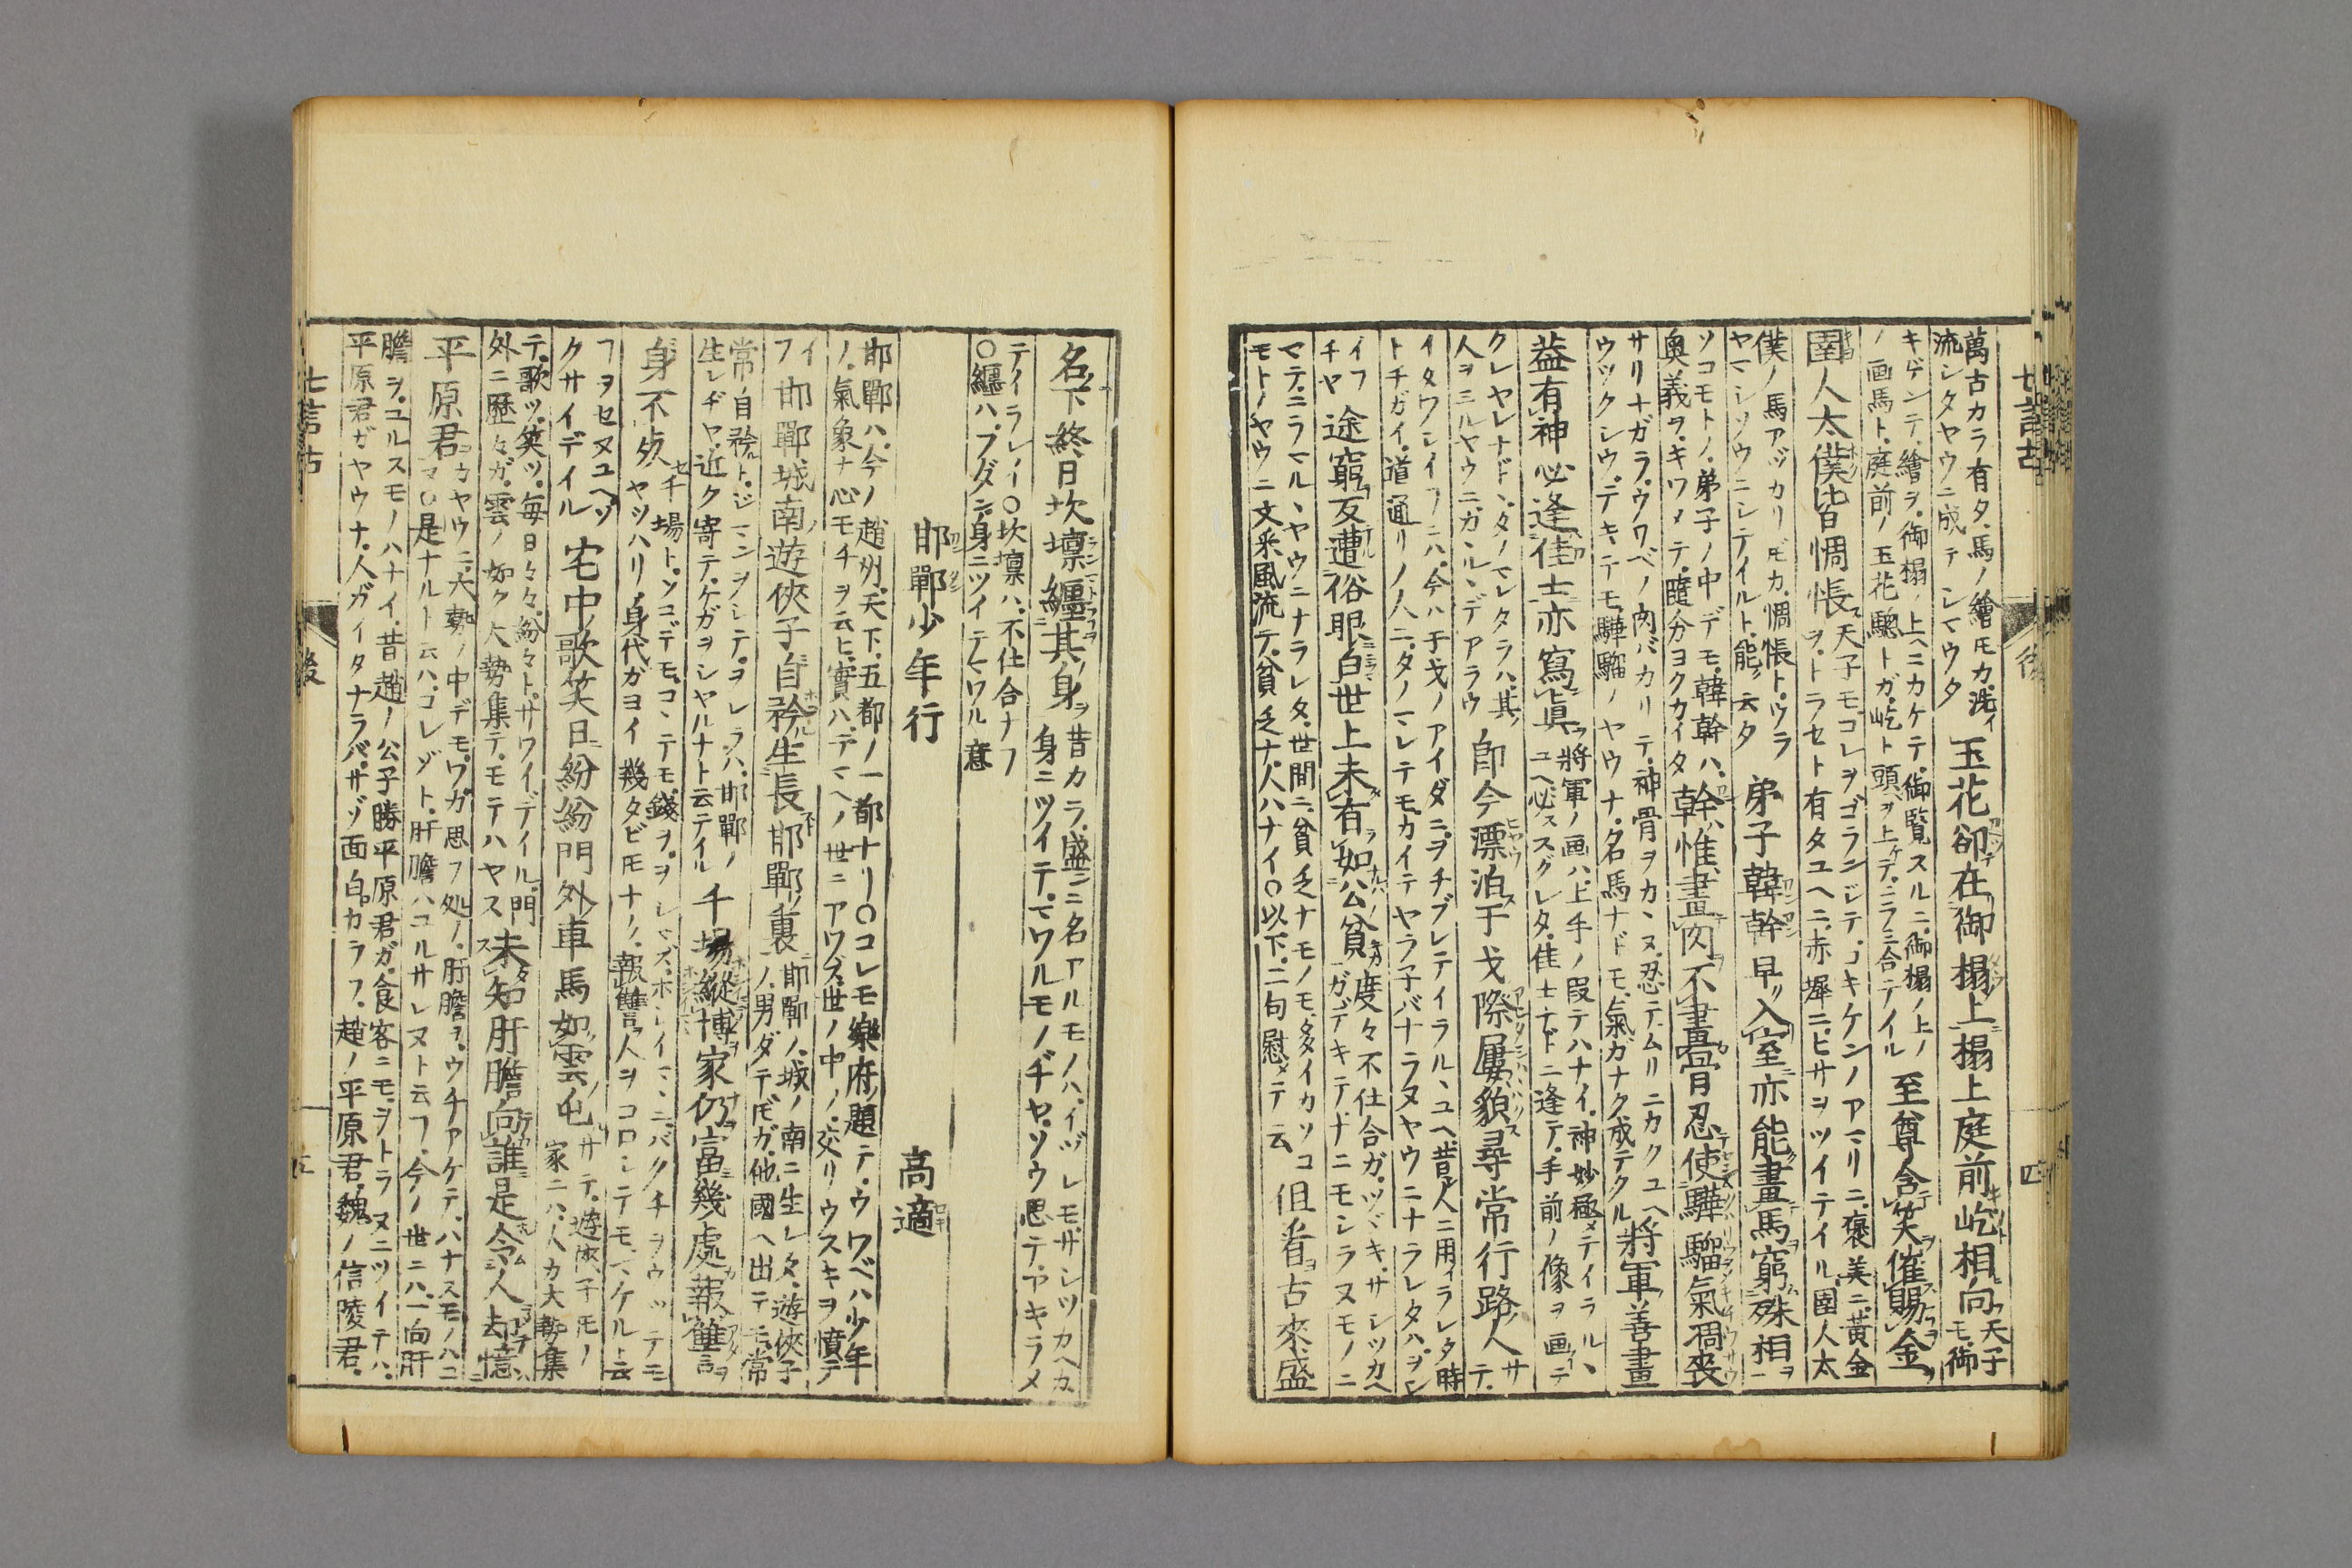 七言古
後
四
萬古カラ有タ馬ノ繪モカ洗イ
流シタヤウニ成テシマウタ
玉花卻在御榻上榻上庭前屹相向
天子モ御
キゲンテ繪ヲ御榻ノ上ヘニカケテ御覧スルニ御榻ノ上ノ
ノ画馬ト庭前ノ玉花驄トガ屹ト頭ヲ上ケテニフ三合テイル
至尊含笑催賜金
圉人太僕皆惆悵
天子モコレヲゴランジテゴキケンノアマリニ褒美ニ黄金
ヲトラセト有タユヘニ赤墀ニヒサヲツイテイル圉人太
僕ノ馬アヅカリモカ惆悵トウラ
ヤマシソウニシテイルト能ク云タ
弟子韓幹早入室亦能畫馬窮殊相
ソコモトノ弟子ノ中デモ韓幹ハ
奥義ヲキワメテ隨分ヨクカイタ
幹惟畫肉不畫骨忍使驊騮氣凋喪
サリナガラウワベノ肉バカリテ神骨ヲカヽヌ忍テムリニカクユヘ
ウツクシウデキテモ驊騮ノヤウナ名馬ナドモ氣ガナク成テクル
將軍善畫
蓋有神必逢佳士亦寫眞
將軍ノ画ハ上手ノ段テハナイ神妙極メテイラルヽ
ユヘ必ススグレタ佳士ナドニ逢テ手前ノ像ヲ画イテ
クレヤレナドヽタノマレタラハ其
人ヲミルヤウニガヽルヽデアラウ
即今漂泊干戈際屢貌尋常行路人
サテ
イタワシイフニハ今ハ干戈ノアイダニヲチブレテイラルヽユヘ昔人ニ用イラレタ時
トチガイ道通リノ人ニタノマレテモカイテヤラ子バナラヌヤウニナラレタハヲシ
イフヂヤ
途窮反遭俗眼白世上未有如公貧
度々不仕合ガツヾキサシツカヘ
ガデキテナニモシラヌモノニ
マテニラマルヽヤウニナラレタ世間ニ貧乏ナモノモ多イカソコ
モトノヤウニ文釆風流テ貧乏ナ人ハナイ○以下二句慰メテ云
但看古來盛
名下終日坎壈纒其身
昔カラ盛ニ名アルモノハイヅレモサシツカヘカ
身ニツイテマワルモノヂヤソウ思テアキラメ
テイラレイ○坎壈ハ不仕合ナフ
○纒ハフダン身ニツイテマワル意
邯鄲少年行
高適
邯鄲ハ今ノ趙州天下五都ノ一都ナリ○コレモ樂府題テウワベハ少年
ノ氣象ナ心モチヲ云ヒ實ハデマヘノ世ニアワズ世ノ中ノ交リウスキヲ憤テ
イフ
邯鄲城南遊俠子自矜生長邯鄲裏
邯鄲ノ城ノ南ニ生レタ遊俠子
ノ男ダテモガ他國ヘ出テモ常
常ノ自矜トジマンヲシテヲレラハ邯鄲ノ
生レヂヤ近ク寄テケガヲシヤルナト云テイル
千場縱博家仍富幾處報讐
身不死
千場トソコデモコヽテモ錢ヲヲレマズホシイマヽニバクチヲウツテモ
ヤツハリ身代ガヨイ幾タビモナノ報讐人ヲコロシテモマケルト云
フヲセヌユヘゾ
クサイデイル
宅中歌笑日紛紛門外車馬如雲屯
サテ遊俠子モノ
家ニハ人カ大勢集
テ歌ツ笑ツ毎日々々紛々トサワイデイル門
外ニ歴々ガ雲ノ如ク大勢集テモテハヤス
未知肝膽向誰是令人却憶
平原君
カヤウニ大勢ノ中デモワガ思フ処ノ肝膽ヲウチアケテハナスモノハコ
マロ是ナルト云ハコレゾト肝膽ハユルサレヌト云フ今ノ世ニハ一向肝
膽ヲユルスモノハナイ昔趙ノ公子勝平原君ガ食客ニモヲトラヌニツイテハ
平原君ガヤウナ人ガイタナラバサゾ面白カラフ趙ノ平原君魏ノ信陵君
七言古
後
五